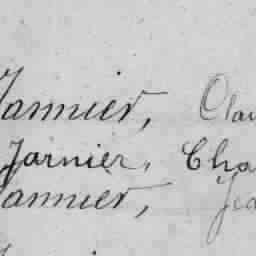 Jannier, Clau
Jarnier, Cha
Jannier, Jea